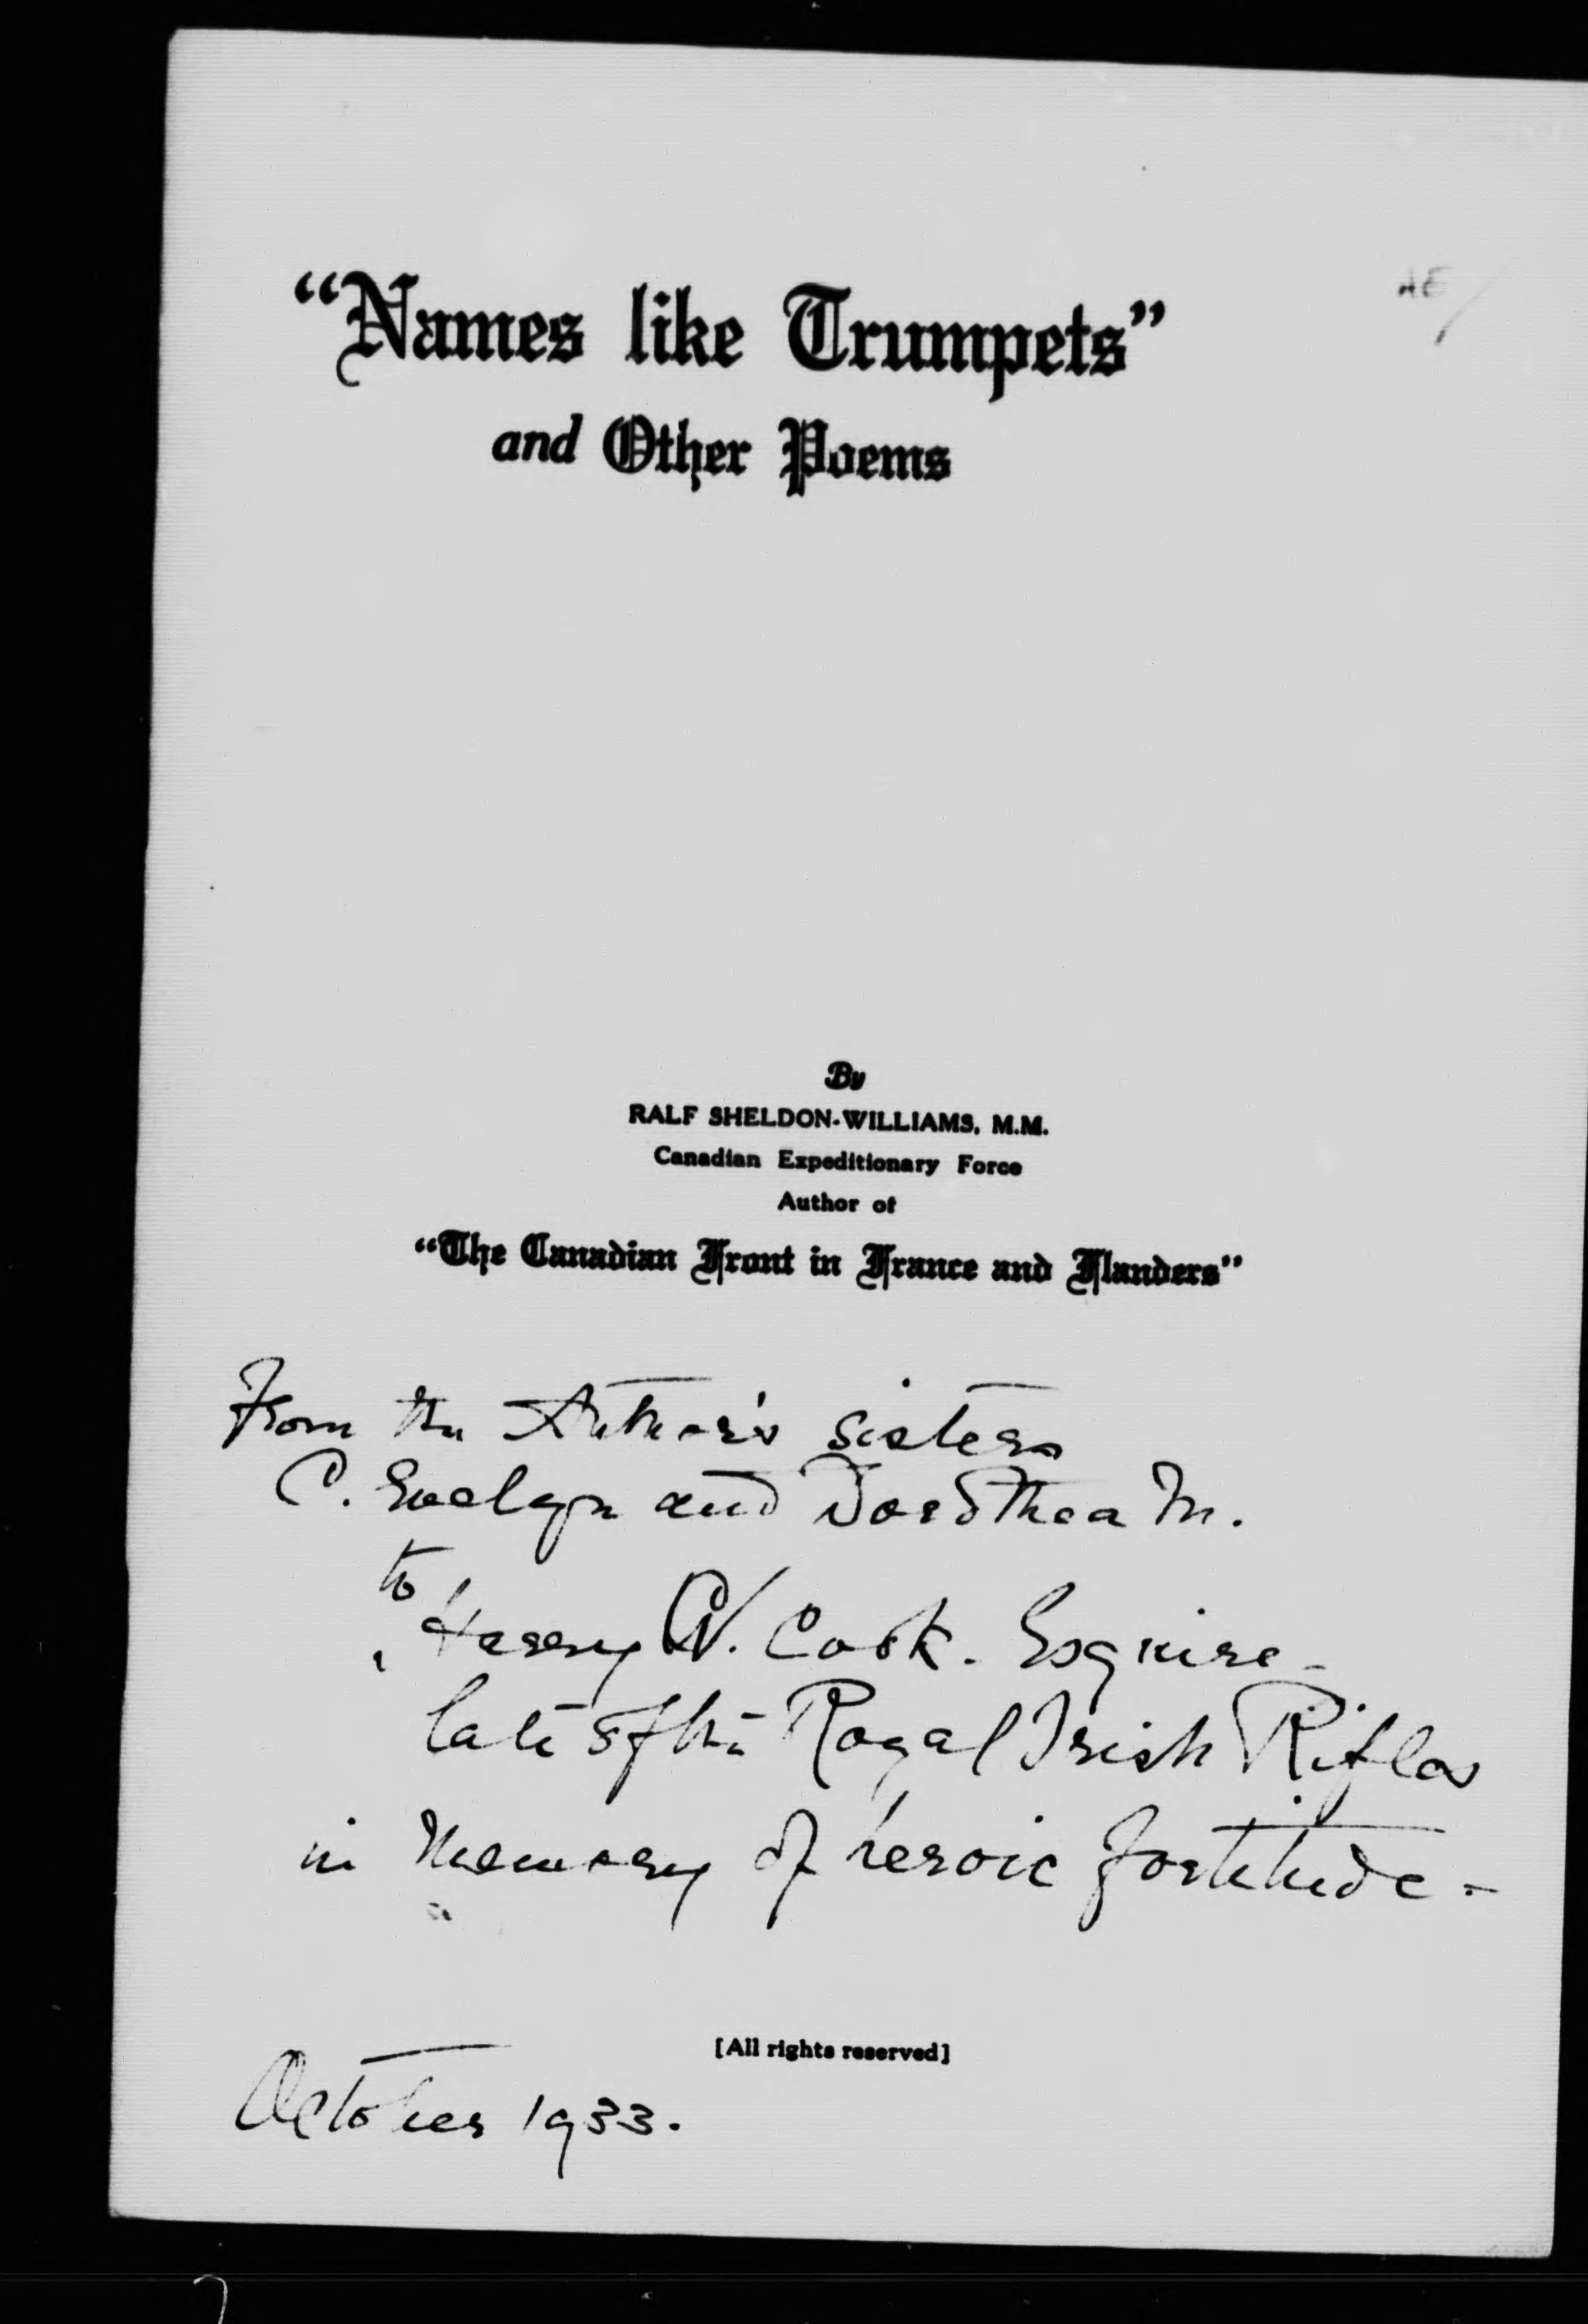 “Names like Trumpets”
and Other Poems
By
RALF SHELDON-WILLIAMS, M.M.
Canadian Expeditionary Force
Author of
“The Canadian Front in France and Flanders”
From the Author's sisters
C. Evelyn and Dorothea M.
to
Harry W. Cook. Esquire -
late of the Royal Irish Rifles
in memory of heroic fortitude -
[All rights reserved]
October 1933.